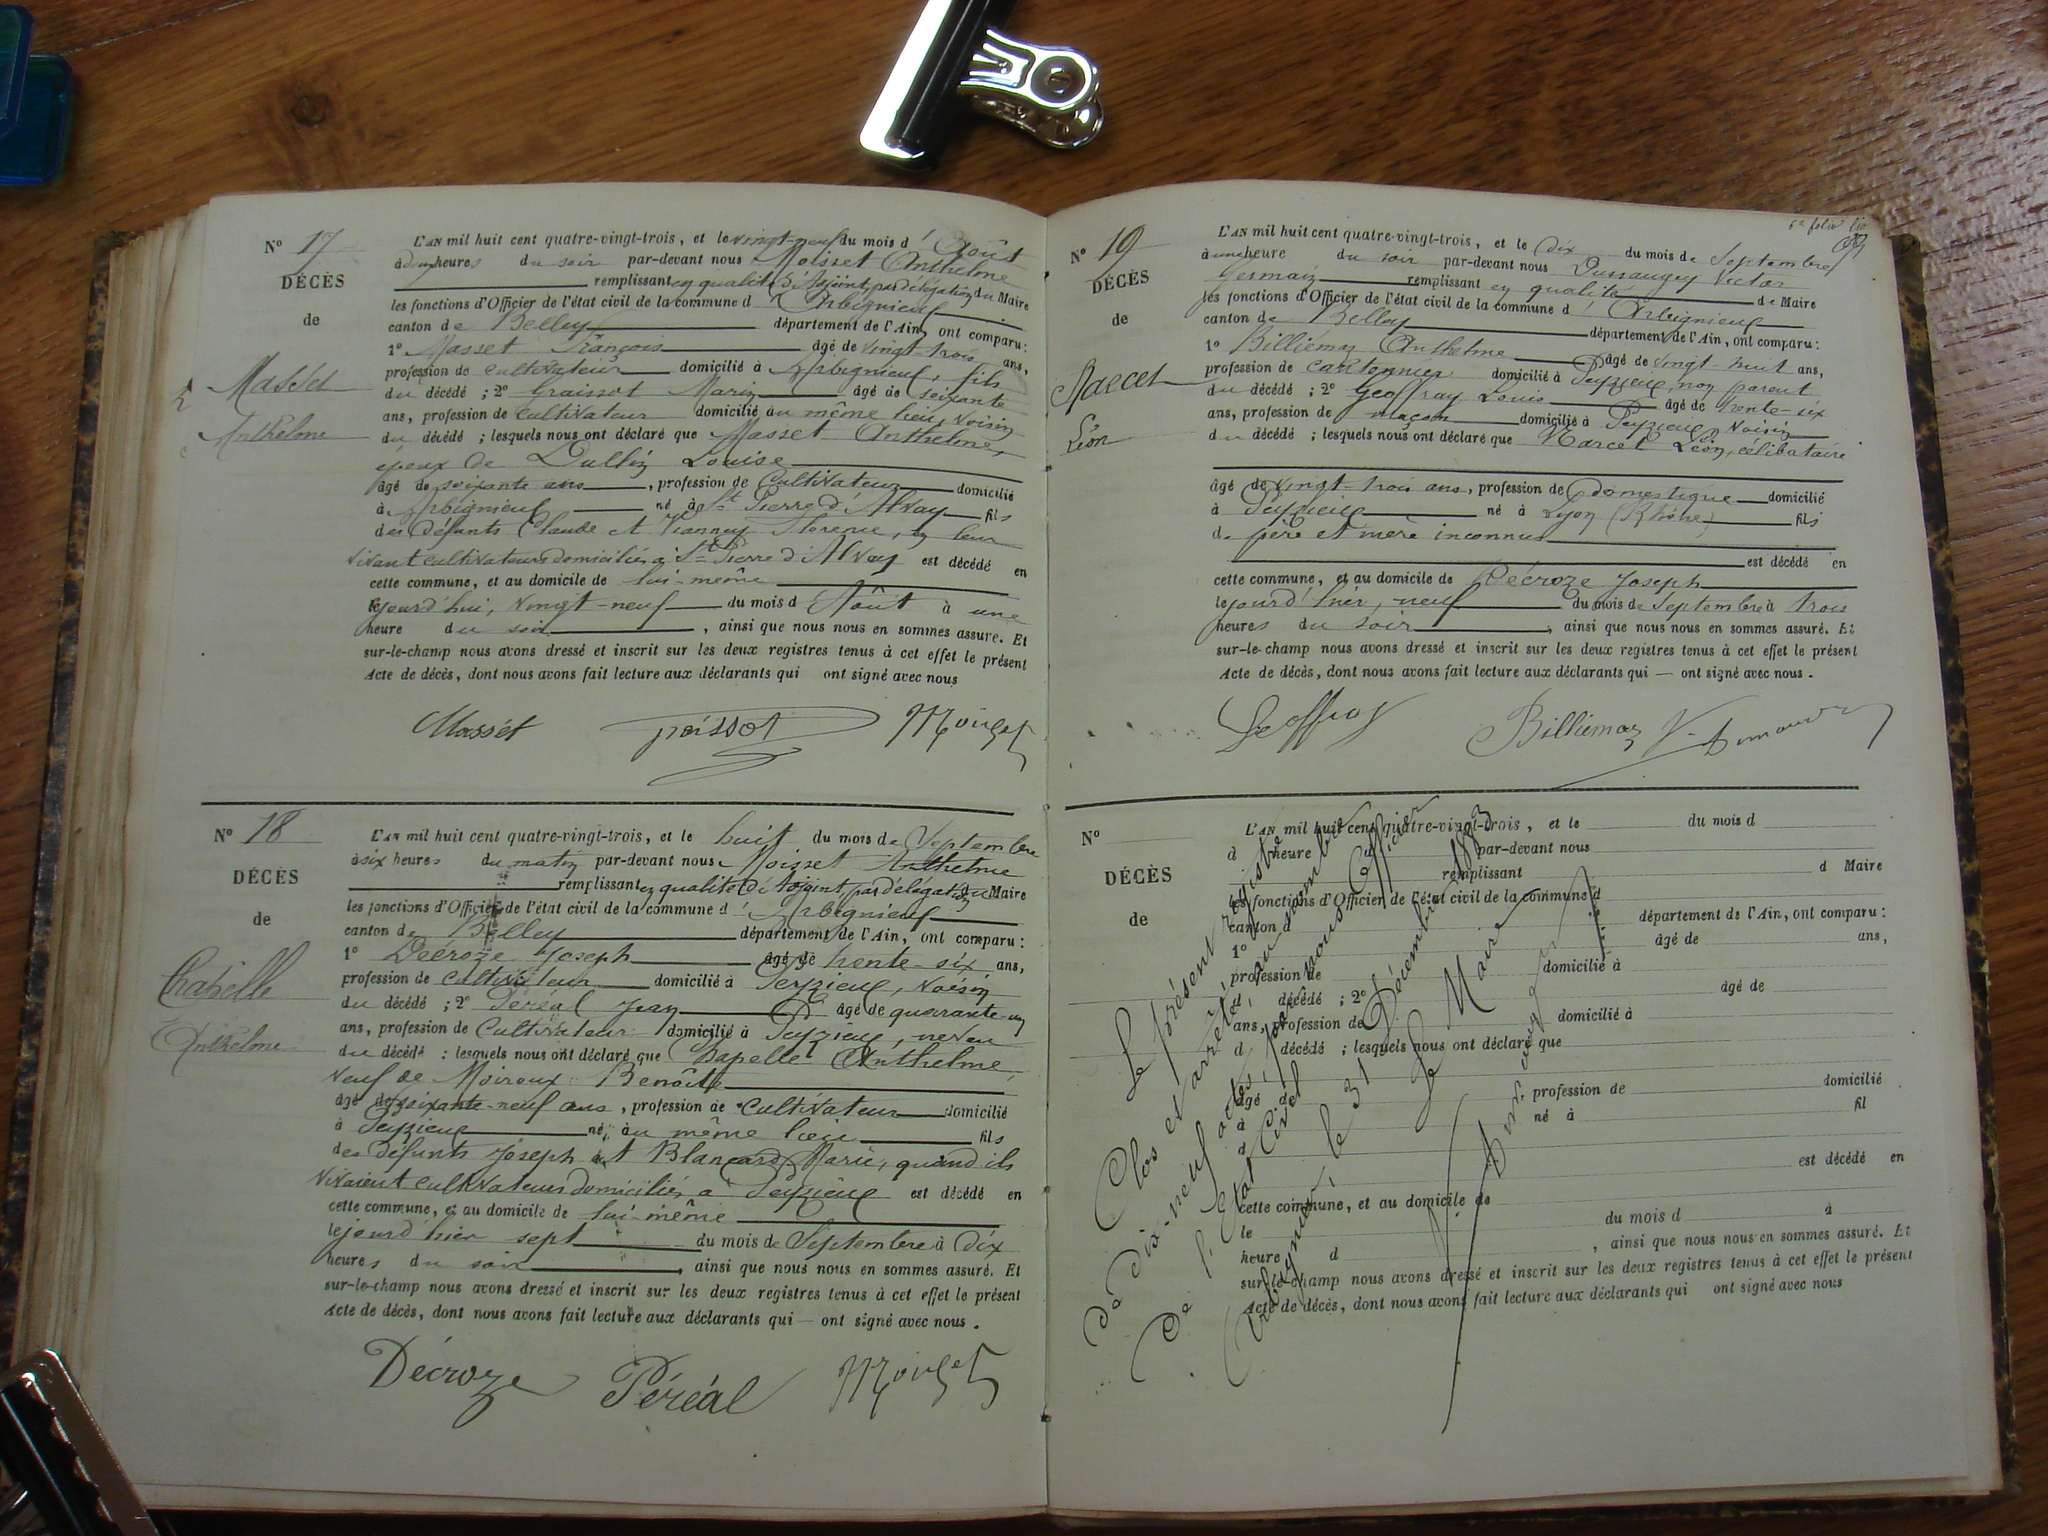 N° 17
DÉCÈS
de
Masset
Anthelme
L'AN mil huit cent quatre-vingt-trois, et le vingt-neuf du mois d'Août
à deux heures du soir par-devant nous Moisset Anthelme
remplissant en qualité d'Adjoint, par délégation du Maire
les fonctions d'Officier de l'état civil de la commune d'Arbignieu
canton de Belley département de l'Ain, ont comparu :
1° Masset François âgé de vingt-trois ans,
profession de cultivateur domicilié à Arbignieu, fils
du décédé ; 2° Graissot Marin âgé de soixante
ans, profession de cultivateur domicilié au même lieu, voisin
du décédé ; lesquels nous ont déclaré que Masset Anthelme,
époux de Dullin Louise
âgé de soixante ans, profession de cultivateur domicilié
à Arbignieu né à St Pierre d'Alvey fils
des défunts Claude et Vianney Florence, en leur
vivant cultivateurs domiciliés à St Pierre d'Alvey est décédé en
cette commune, et au domicile de lui-même
le jourd'hui, vingt-neuf du mois d'Août à une
heure du soir, ainsi que nous nous en sommes assuré. Et
sur-le-champ nous avons dressé et inscrit sur les deux registres tenus à cet effet le présent
Acte de décès, dont nous avons fait lecture aux déclarants qui ont signé avec nous
Masset
N° 18
DÉCÈS
de
Chapelle
Anthelme
L'AN mil huit cent quatre-vingt-trois, et le huit du mois de Septembre
à six heures du matin par-devant nous Moisset Anthelme
remplissant en qualité d'Adjoint, par délégation du Maire
les fonctions d'Officier de l'état civil de la commune d'Arbignieu
canton de Belley département de l'Ain, ont comparu :
1° Décroze Joseph âgé de trente-six ans,
profession de cultivateur domicilié à Peyzieu, voisin
du décédé ; 2° Péréal Jean âgé de quarante-un
ans, profession de cultivateur domicilié à Peyzieu, neveu
du décédé ; lesquels nous ont déclaré que Chapelle Anthelme,
veuf de Moiroux Benoîte
âgé de soixante-neuf ans, profession de cultivateur domicilié
à Peyzieu né au même lieu fils
des défunts Joseph et Blancard Marie, quand ils
vivaient cultivateurs domiciliés à Peyzieu est décédé en
cette commune, et au domicile de lui-même
le jourd'hier sept du mois de Septembre à dix
heures du soir, ainsi que nous nous en sommes assuré. Et
sur-le-champ nous avons dressé et inscrit sur les deux registres tenus à cet effet le présent
Acte de décès, dont nous avons fait lecture aux déclarants qui — ont signé avec nous.
Décroze Péréal
N° 19
DÉCÈS
de
Marcet
Léon
L'AN mil huit cent quatre-vingt-trois, et le dix du mois de Septembre
à une heure du soir par-devant nous Dussaugey Victor
Germain remplissant en qualité de Maire
les fonctions d'Officier de l'état civil de la commune d'Arbignieu
canton de Belley département de l'Ain, ont comparu :
1° Billiémaz Anthelme âgé de vingt-huit ans,
profession de cantonnier domicilié à Peyzieu, non parent
du décédé ; 2° Geoffray Louis âgé de trente-six
ans, profession de maçon domicilié à Peyzieu, voisin
du décédé ; lesquels nous ont déclaré que Marcet Léon, célibataire
âgé de vingt-trois ans, profession de domestique domicilié
à Peyzieu né à Lyon (Rhône) fils
de père et mère inconnus
est décédé en
cette commune, et au domicile de Décroze Joseph
le jourd'hier, neuf du mois de Septembre à trois
heures du soir, ainsi que nous nous en sommes assuré. Et
sur-le-champ nous avons dressé et inscrit sur les deux registres tenus à cet effet le présent
Acte de décès, dont nous avons fait lecture aux déclarants qui — ont signé avec nous.
Geoffray Billiemaz
N°
DÉCÈS
de
L'AN mil huit cent quatre-vingt-trois, et le du mois d
d heure par-devant nous
remplissant d Maire
les fonctions d'Officier de l'état civil de la commune d
canton d département de l'Ain, ont comparu :
1° âgé de ans,
profession de domicilié à
d décédé ; 2° âgé de
ans, profession de domicilié à
d décédé ; lesquels nous ont déclaré que
âgé de profession de domicilié
à né à fil
d
est décédé en
cette commune, et au domicile de
le du mois d à
heure d , ainsi que nous nous en sommes assuré. Et
sur-le-champ nous avons dressé et inscrit sur les deux registres tenus à cet effet le présent
Acte de décès, dont nous avons fait lecture aux déclarants qui ont signé avec nous
Le présent registre
Clos et arrêté au nombre
de dix-neuf actes, par nous Officier
de l'Etat Civil
Arbignieu, le 31 Décembre 1883
Le Maire